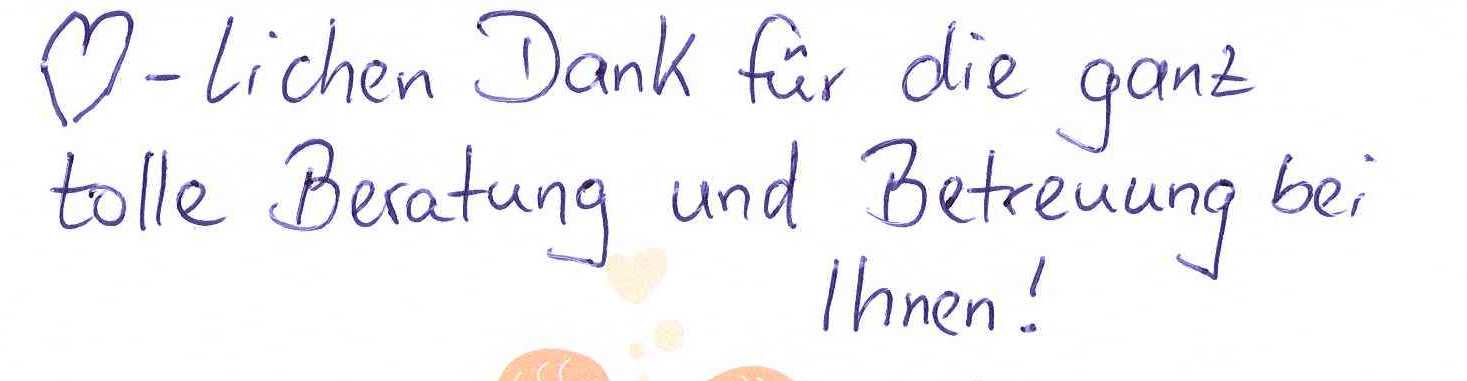 ♡-lichen Dank für die ganz
tolle Beratung und Betreuung bei
Ihnen!